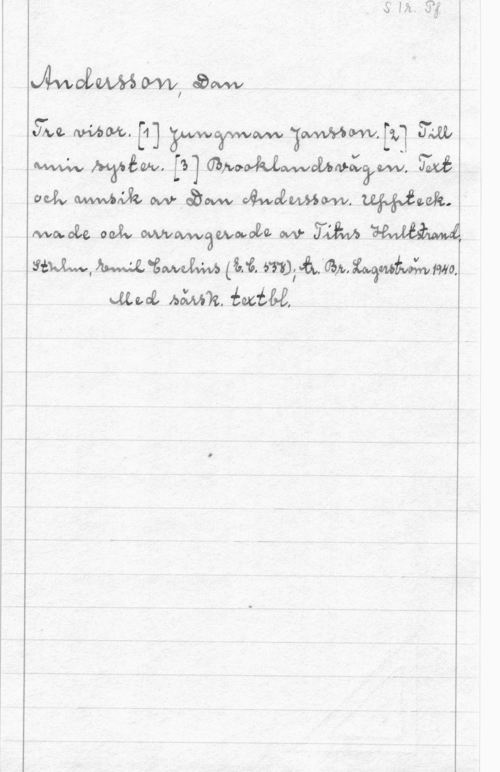 S 1 r. Pf
Andersson, Dan
Tre visor. [1] Jungman Jansson. [2] Till
min syster. [3] Brooklandsvägen. Text
och musik av Dan Andersson. Uppteck-
nade och arrangerade av Titus Hultstrand.
Sthlm, Emil Carelius (E. C. 558), tr. Br. Lagerström 1940.
Med särsk. textbl.